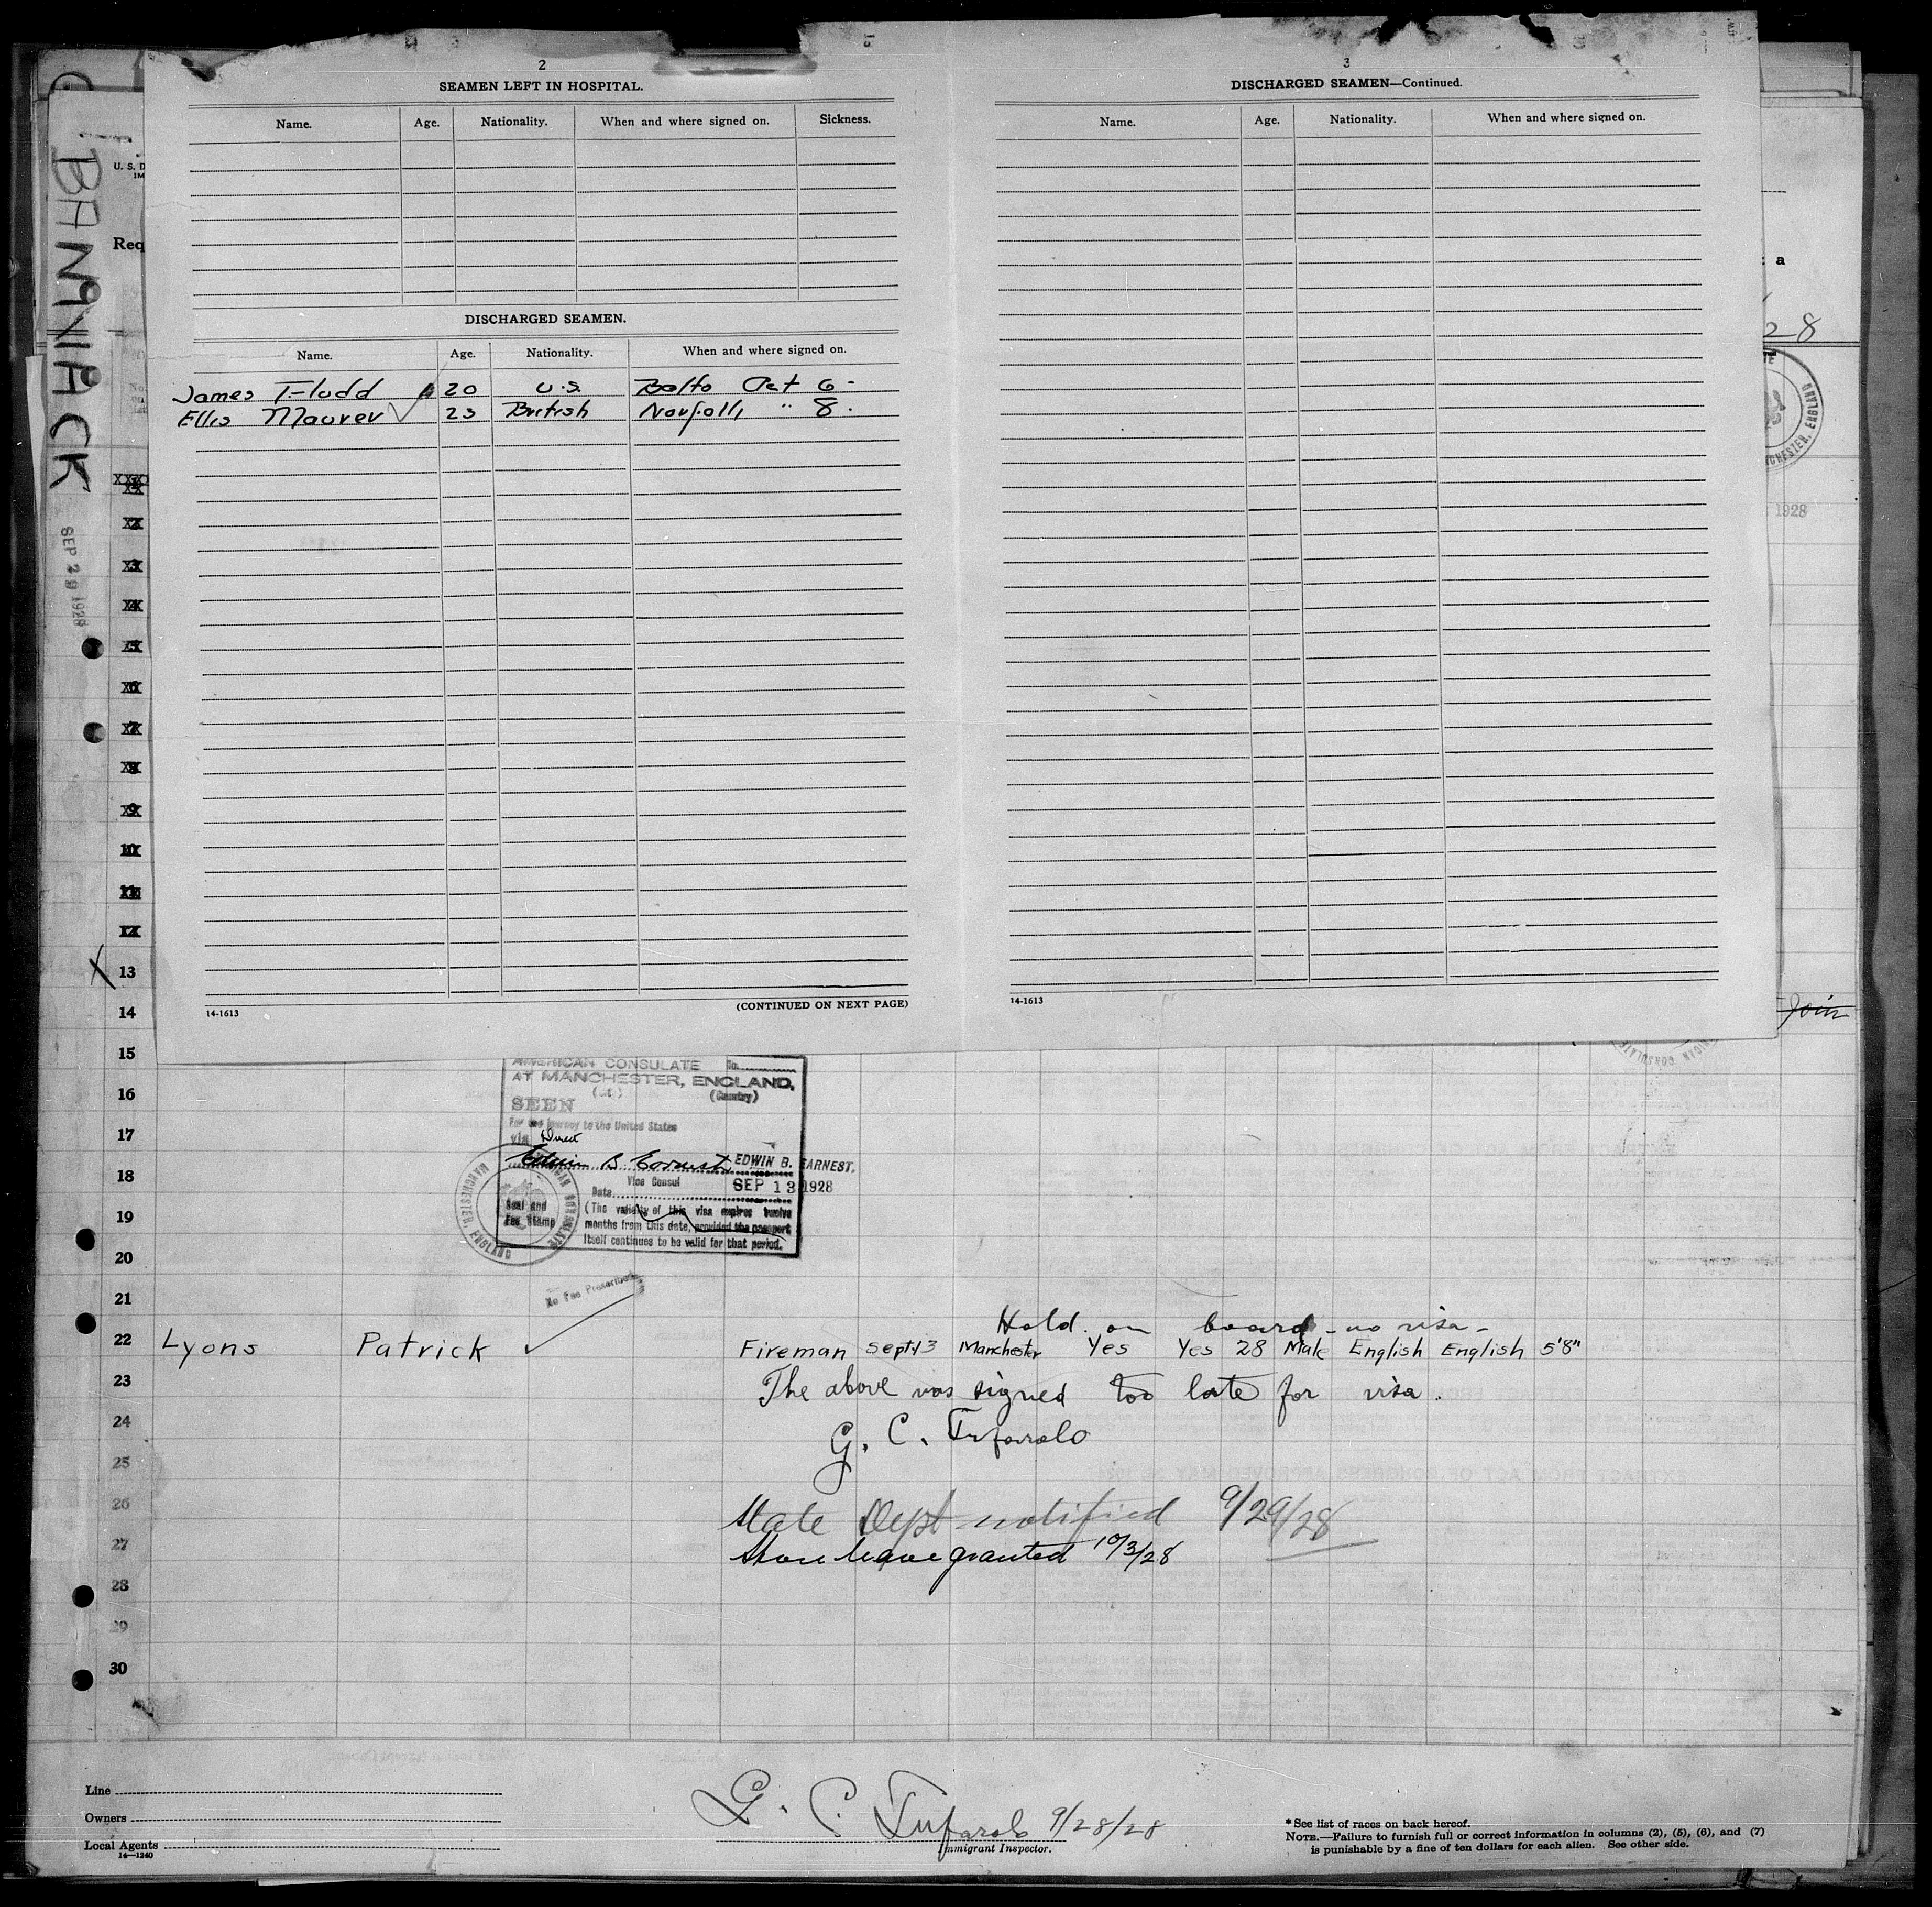 2
SEAMEN LEFT IN HOSPITAL.
Name. Age. Nationality. When and where signed on. Sickness.
DISCHARGED SEAMEN.
Name. Age. Nationality. When and where signed on.
James 20 U.S. Balto Oct 6-
Ellis Maurer ✓ 23 British " 8.
14-1613
(CONTINUED ON NEXT PAGE)
3
DISCHARGED SEAMEN—Continued.
Name. Age. Nationality. When and where signed on.
14-1613
U. S. D
IM
Req
SEP 29 1928
a
28
CHESTER, ENGLAND
1928
Join
3
4
5
6
7
8
9
10
11
12
X 13
14
15
16
17
18
19
20
21
22
23
24
25
26
27
28
29
30
AMERICAN CONSULATE No.
AT MANCHESTER, ENGLAND,
(Country)
SEEN
For the journey to the United States
via Direct
EDWIN B. EARNEST.
Vice Consul
Date SEP 13 1928
Seal and
Fee Stamp
(The validity of this visa expires twelve
months from this date, provided the passport
itself continues to be valid for that period.
MANCHESTER, ENGLAND
No Fee Prescribed
Hold on board - no visa -
Lyons Patrick ✓ Fireman Sept 13 Manchester Yes Yes 28 Male English English 5'8"
The above was signed too late for visa.
G. C. Tufarolo
State Dept notified 9/29/28
Shore leave granted 10/3/28
Line
Owners
Local Agents
14—1240
G. C. Tufarolo 9/28/28
Immigrant Inspector.
* See list of races on back hereof.
NOTE.—Failure to furnish full or correct information in columns (2), (5), (6), and (7)
is punishable by a fine of ten dollars for each alien. See other side.